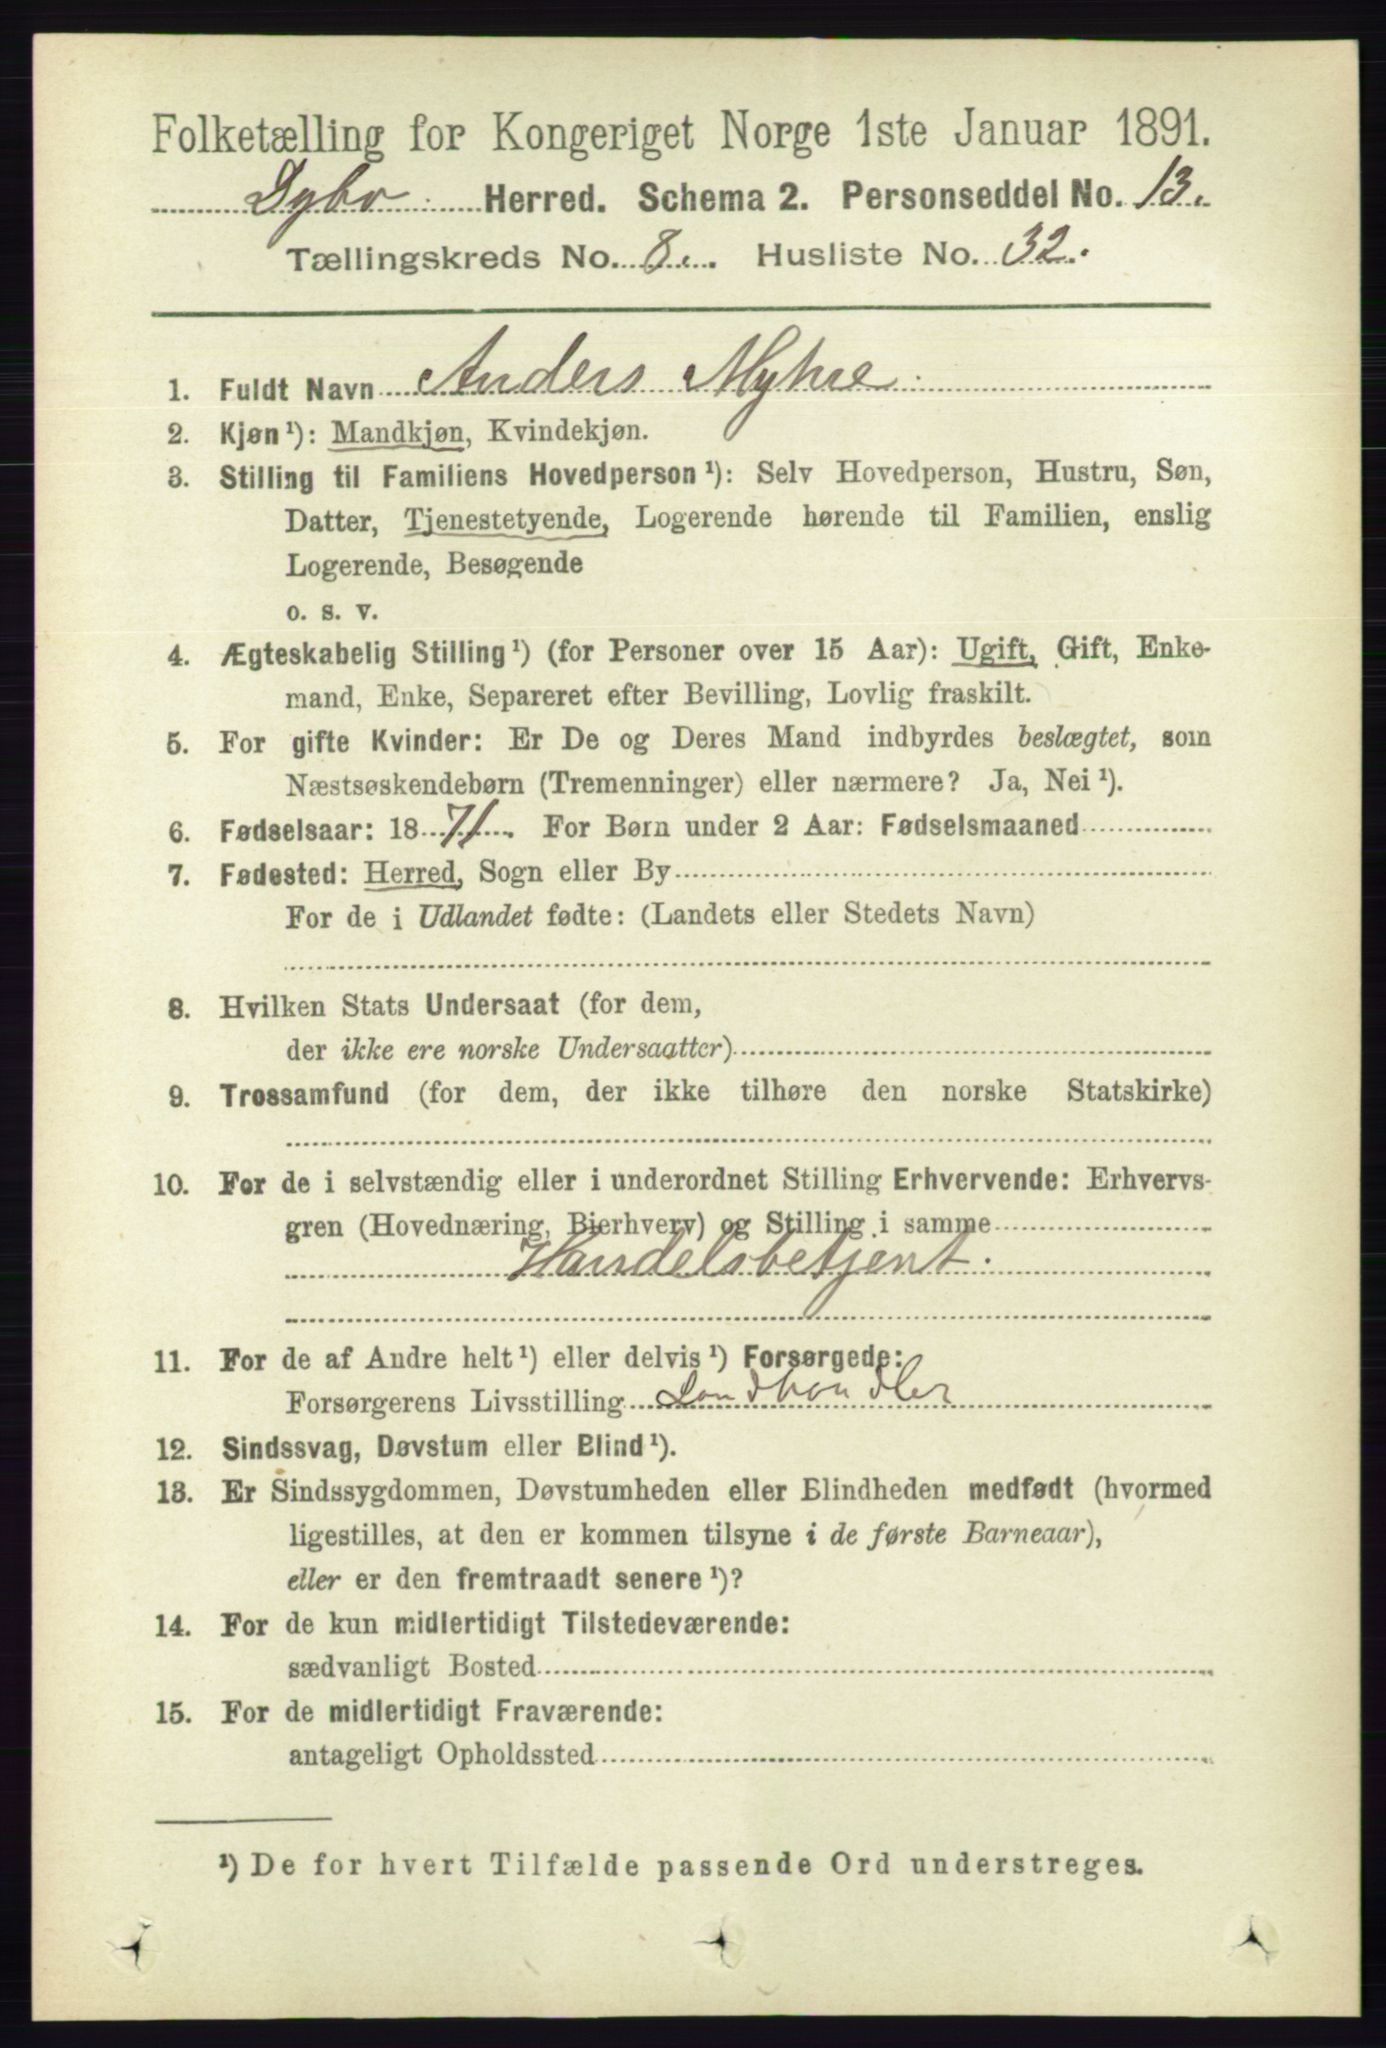 Folketælling for Kongeriget Norge 1ste Januar 1891.
Dybø Herred. Schema 2. Personseddel No. 13.
Tællingskreds No. 8. Husliste No. 32.
1. Fuldt Navn Anders Myhre
2. Kjøn¹): Mandkjøn, Kvindekjøn.
3. Stilling til Familiens Hovedperson¹): Selv Hovedperson, Hustru, Søn,
Datter, Tjenestetyende, Logerende hørende til Familien, enslig
Logerende, Besøgende
o. s. v.
4. Ægteskabelig Stilling¹) (for Personer over 15 Aar): Ugift, Gift, Enke-
mand, Enke, Separeret efter Bevilling, Lovlig fraskilt.
5. For gifte Kvinder: Er De og Deres Mand indbyrdes beslægtet, som
Næstsøskendebørn (Tremenninger) eller nærmere? Ja, Nei¹).
6. Fødselsaar: 1871. For Børn under 2 Aar: Fødselsmaaned
7. Fødested: Herred, Sogn eller By
For de i Udlandet fødte: (Landets eller Stedets Navn)
8. Hvilken Stats Undersaat (for dem,
der ikke ere norske Undersaatter)
9. Trossamfund (for dem, der ikke tilhøre den norske Statskirke)
10. For de i selvstændig eller i underordnet Stilling Erhvervende: Erhvervs-
gren (Hovednæring, Bierhverv) og Stilling i samme
Handelsbetjent.
11. For de af Andre helt¹) eller delvis¹) Forsørgede:
Forsørgerens Livsstilling Landhandler
12. Sindssvag, Døvstum eller Blind¹).
13. Er Sindssygdommen, Døvstumheden eller Blindheden medfødt (hvormed
ligestilles, at den er kommen tilsyne i de første Barneaar),
eller er den fremtraadt senere¹)?
14. For de kun midlertidigt Tilstedeværende:
sædvanligt Bosted
15. For de midlertidigt Fraværende:
antageligt Opholdssted
¹) De for hvert Tilfælde passende Ord understreges.